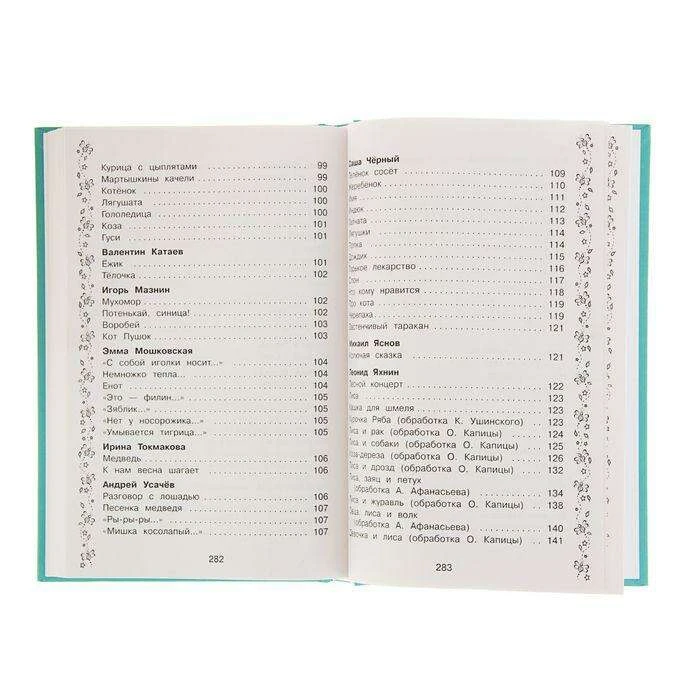 Курица с цыплятами 99
Мартышкины качели 99
Котёнок 100
Лягушата 100
Гололедица 100
Коза 101
Гуси 101
Валентин Катаев
Ёжик 101
Тёлочка 102
Игорь Мазнин
Мухомор 102
Потенькай, синица! 102
Воробей 103
Кот Пушок 103
Эмма Мошковская
«С собой иголки носит...» 104
Немножко тепла... 104
Енот 104
«Это — филин...» 105
«Зяблик...» 105
«Нет у носорожика...» 105
«Умывается тигрица...» 105
Ирина Токмакова
Медведь 106
К нам весна шагает 106
Андрей Усачёв
Разговор с лошадью 106
Песенка медведя 107
«Ры-ры-ры...» 107
«Мишка косолапый...» 107
282
Саша Чёрный
Телёнок сосёт 109
Жеребёнок 110
111
Индюк 112
113
114
114
Дождик 115
лекарство 116
117
Что кому нравится 118
Про кота 119
Черепаха 119
Застенчивый таракан 121
Михаил Яснов
сказка 121
Леонид Яхнин
Лесной концерт 122
Лиса 123
для шмеля 123
Курочка Ряба (обработка К. Ушинского) 123
Лиса и рак (обработка О. Капицы) 124
Лиса и собаки (обработка О. Капицы) 125
Коза-дереза (обработка О. Капицы) 126
Лиса и дрозд (обработка О. Капицы) 132
Лиса, заяц и петух
(обработка А. Афанасьева) 134
Лиса и журавль (обработка О. Капицы) 138
лиса и волк
(обработка А. Афанасьева) 140
Девочка и лиса (обработка О. Капицы) 141
283